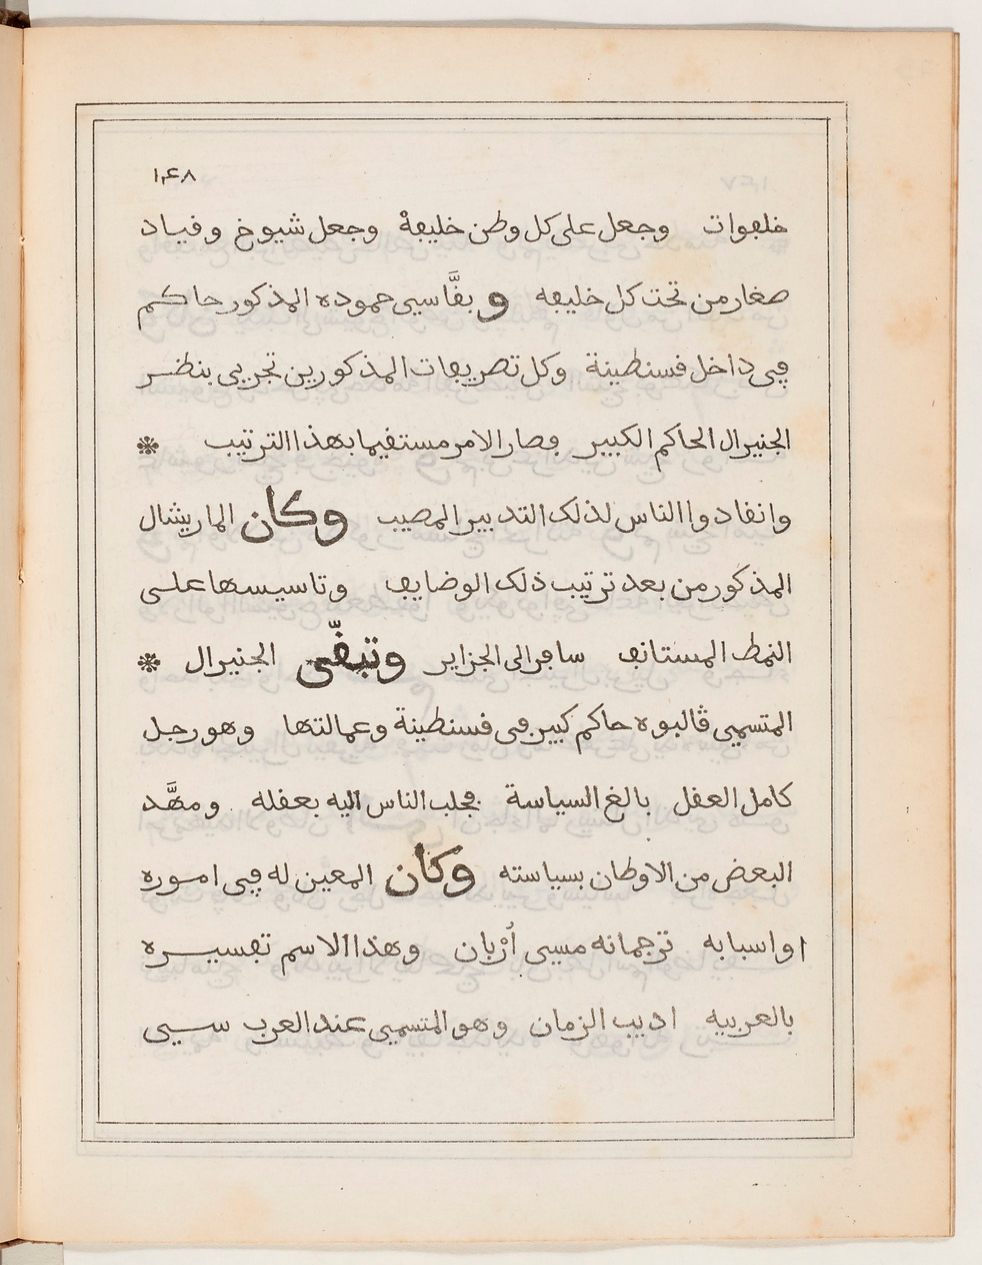 ١٤٨
خلفوات وجعل على كل وطن خليفة وجعل شيوخ وقياد
صغار من تحت كل خليفه وبقَّا سي حموده المذكور حاكم
في داخل قسنطينة وكل تصريفات المذكورين تجري بنظر
الجنيرال الحاكم الكبير فصار الامر مستقيما بهذا الترتيب *
وانقادوا الناس لذلك التدبير المصيب وكان الماريشال
المذكور من بعد ترتيب ذلك الوضايف وتاسيسها على
النمط المستانف سافر الى الجزاير وتبقّى الجنيرال *
المتسمي ڤالبوه حاكم كبير في قسنطينة وعمالتها وهو رجل
كامل العقل بالغ السياسة فجلب الناس اليه بعقله ومهَّد
البعض من الاوطان بسياسته وكان المعين له في اموره
واسبابه ترجمانه مسيى أُرْبان وهذا الاسم تفسيره
بالعربيه اديب الزمان وهو المتسمي عند العرب سي